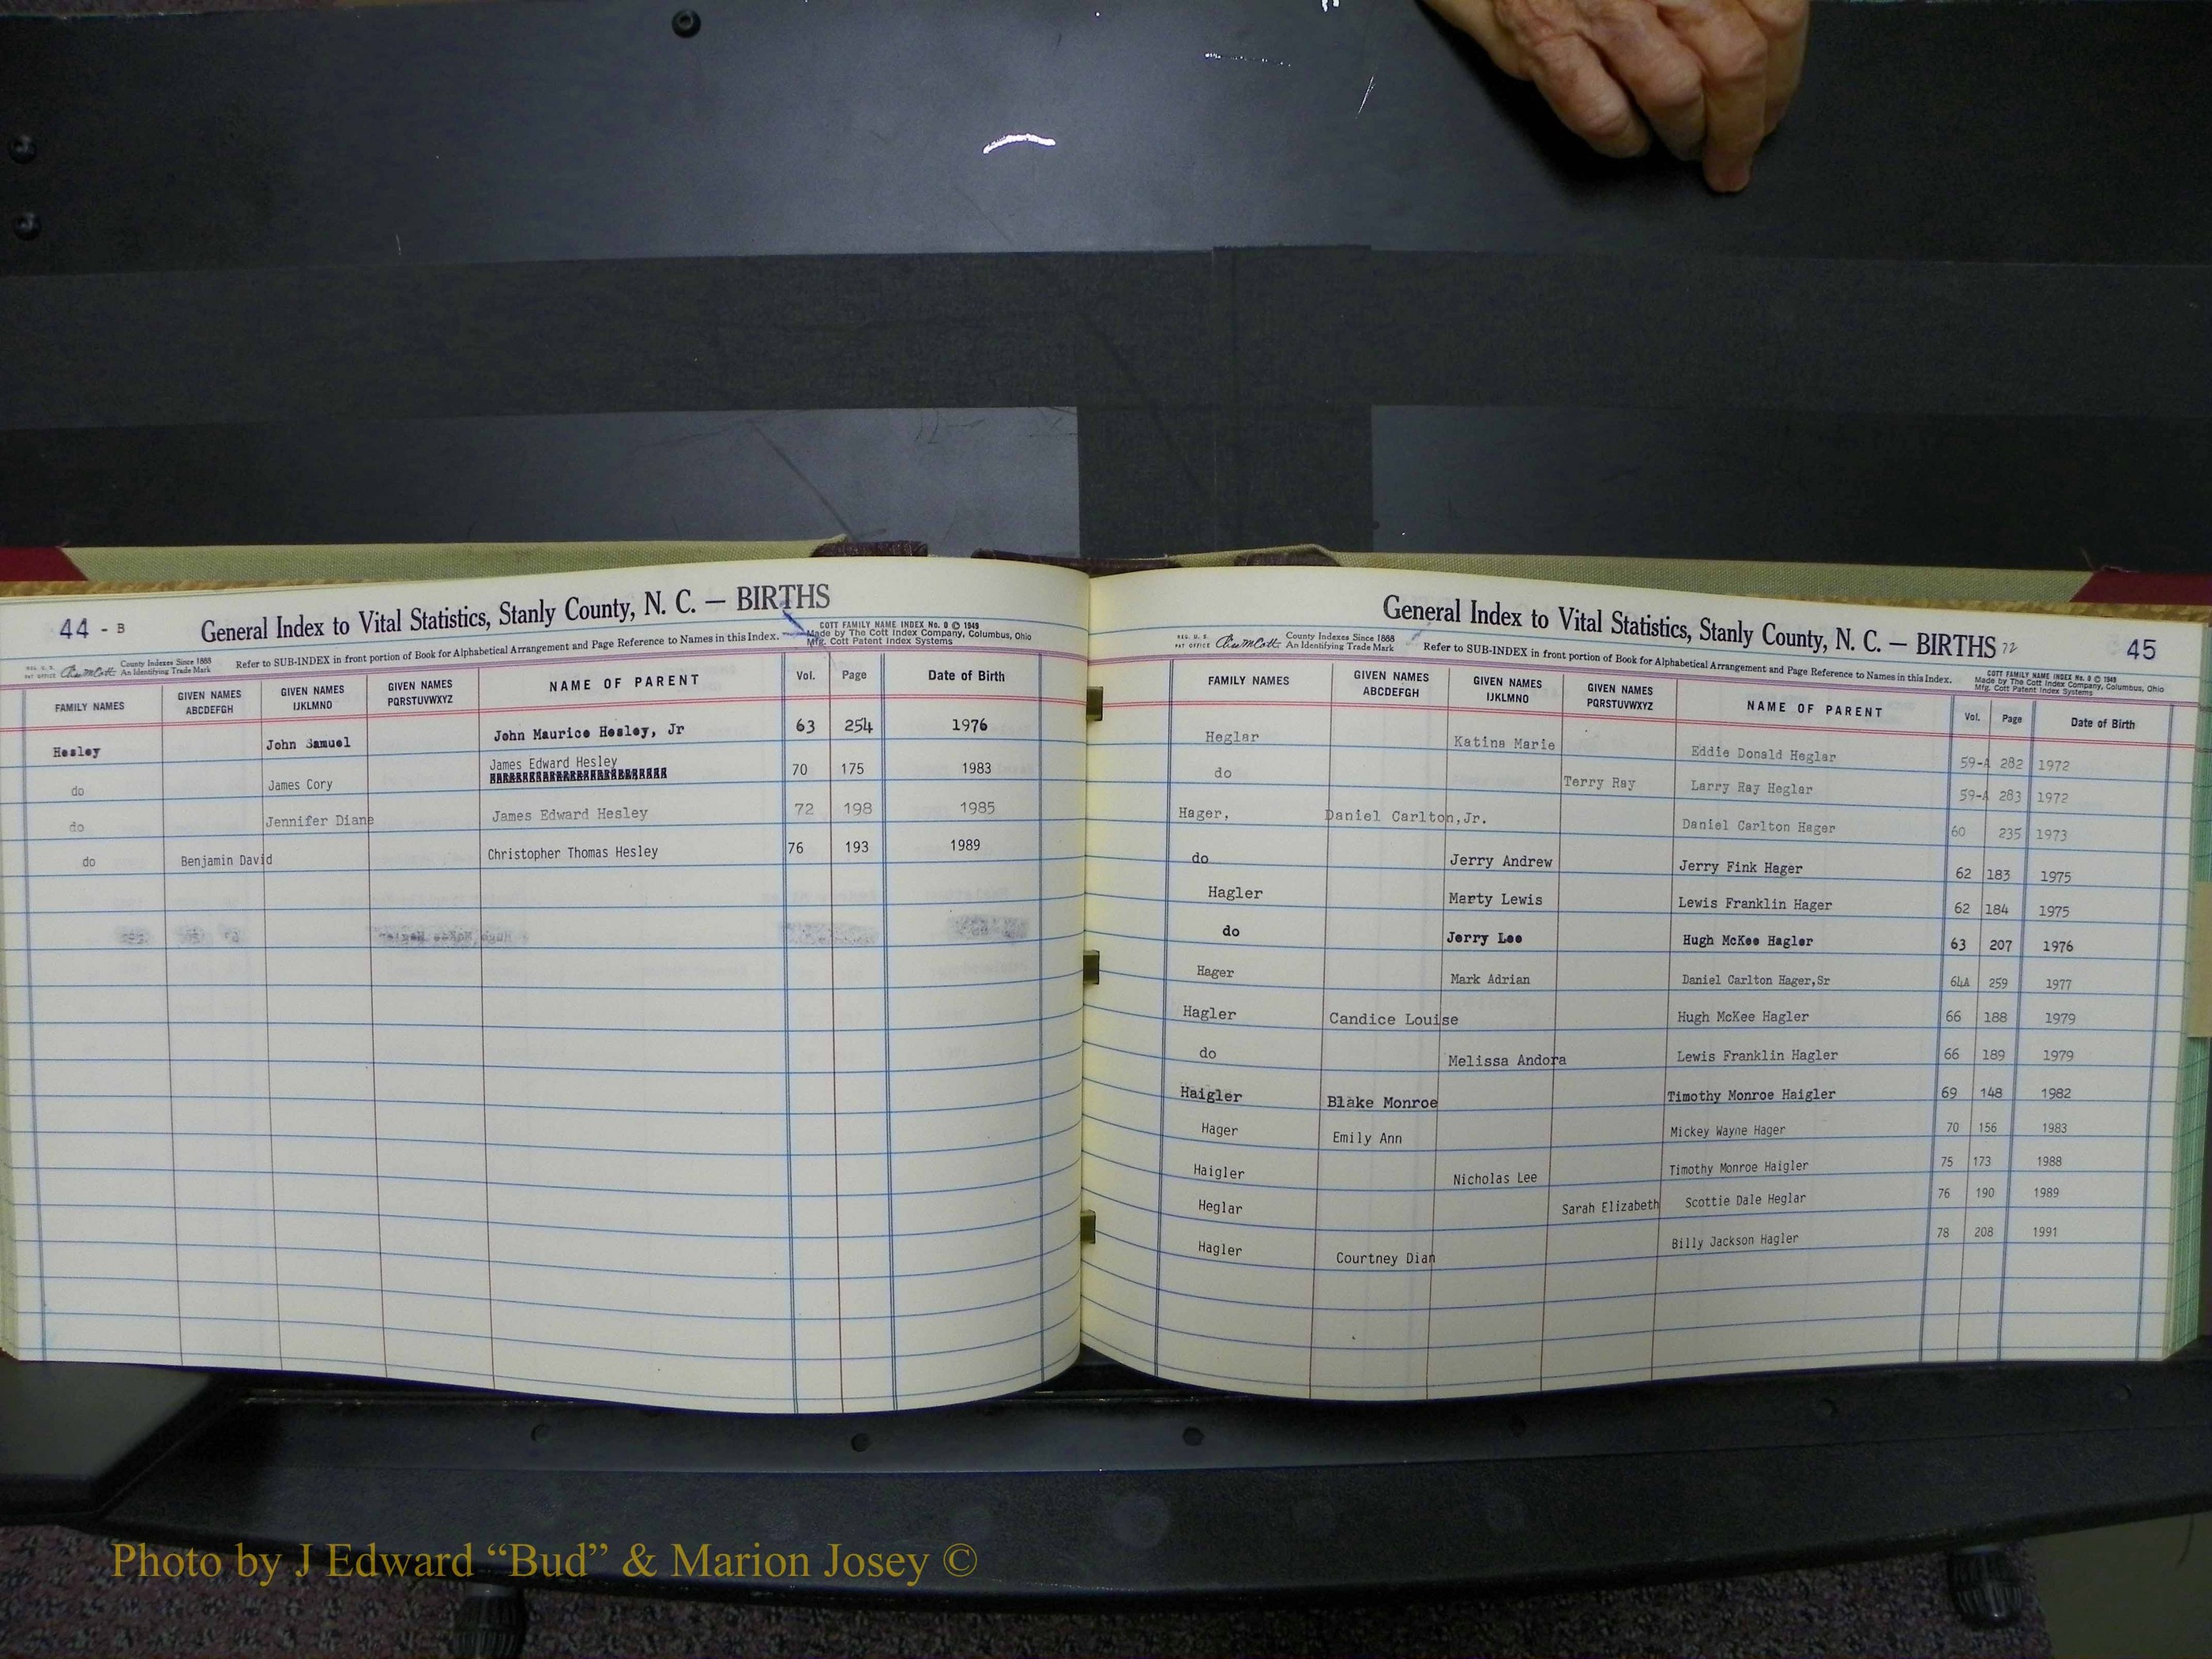 44 - B
General Index to Vital Statistics, Stanly County, N. C. — BIRTHS
COTT FAMILY NAME INDEX No. 0 © 1949
Made by The Cott Index Company, Columbus, Ohio
Mfg. Cott Patent Index Systems
REG. U. S. PAT OFFICE County Indexes Since 1888 An Identifying Trade Mark
Refer to SUB-INDEX in front portion of Book for Alphabetical Arrangement and Page Reference to Names in this Index.
FAMILY NAMES GIVEN NAMES ABCDEFGH GIVEN NAMES IJKLMNO GIVEN NAMES PQRSTUVWXYZ NAME OF PARENT Vol. Page Date of Birth
Hesley John Samuel John Maurice Hesley, Jr 63 254 1976
do James Cory James Edward Hesley 70 175 1983
do Jennifer Diane James Edward Hesley 72 198 1985
do Benjamin David Christopher Thomas Hesley 76 193 1989
General Index to Vital Statistics, Stanly County, N. C. — BIRTHS 72
45
REG. U. S. PAT OFFICE County Indexes Since 1888 An Identifying Trade Mark
Refer to SUB-INDEX in front portion of Book for Alphabetical Arrangement and Page Reference to Names in this Index.
COTT FAMILY NAME INDEX No. 0 © 1949
Made by The Cott Index Company, Columbus, Ohio
Mfg. Cott Patent Index Systems
FAMILY NAMES GIVEN NAMES ABCDEFGH GIVEN NAMES IJKLMNO GIVEN NAMES PQRSTUVWXYZ NAME OF PARENT Vol. Page Date of Birth
Heglar Katina Marie Eddie Donald Heglar 59-A 282 1972
do Terry Ray Larry Ray Heglar 59-A 283 1972
Hager, Daniel Carlton,Jr. Daniel Carlton Hager 60 235 1973
do Jerry Andrew Jerry Fink Hager 62 183 1975
Hagler Marty Lewis Lewis Franklin Hager 62 184 1975
do Jerry Lee Hugh McKee Hagler 63 207 1976
Hager Mark Adrian Daniel Carlton Hager,Sr 64A 259 1977
Hagler Candice Louise Hugh McKee Hagler 66 188 1979
do Melissa Andora Lewis Franklin Hagler 66 189 1979
Haigler Blake Monroe Timothy Monroe Haigler 69 148 1982
Hager Emily Ann Mickey Wayne Hager 70 156 1983
Haigler Nicholas Lee Timothy Monroe Haigler 75 173 1988
Heglar Sarah Elizabeth Scottie Dale Heglar 76 190 1989
Hagler Courtney Dian Billy Jackson Hagler 78 208 1991
Photo by J Edward “Bud” & Marion Josey ©